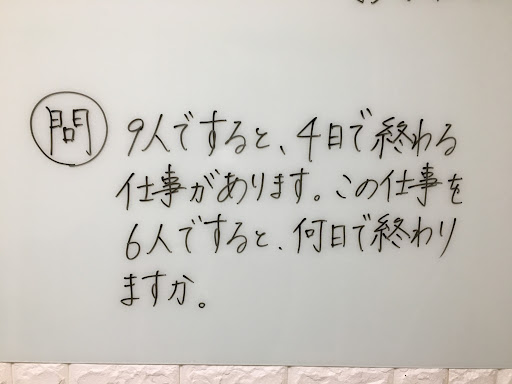 問
9人ですると、4日で終わる
仕事があります。この仕事を
6人ですると、何日で終わり
ますか。